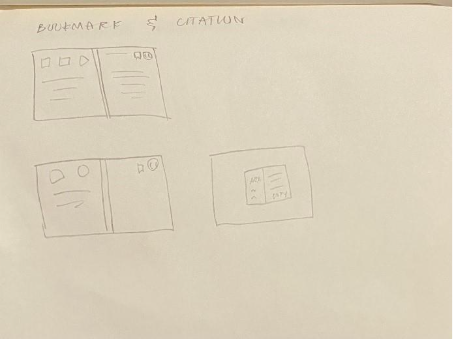 BOOKMARK & CITATION
APA